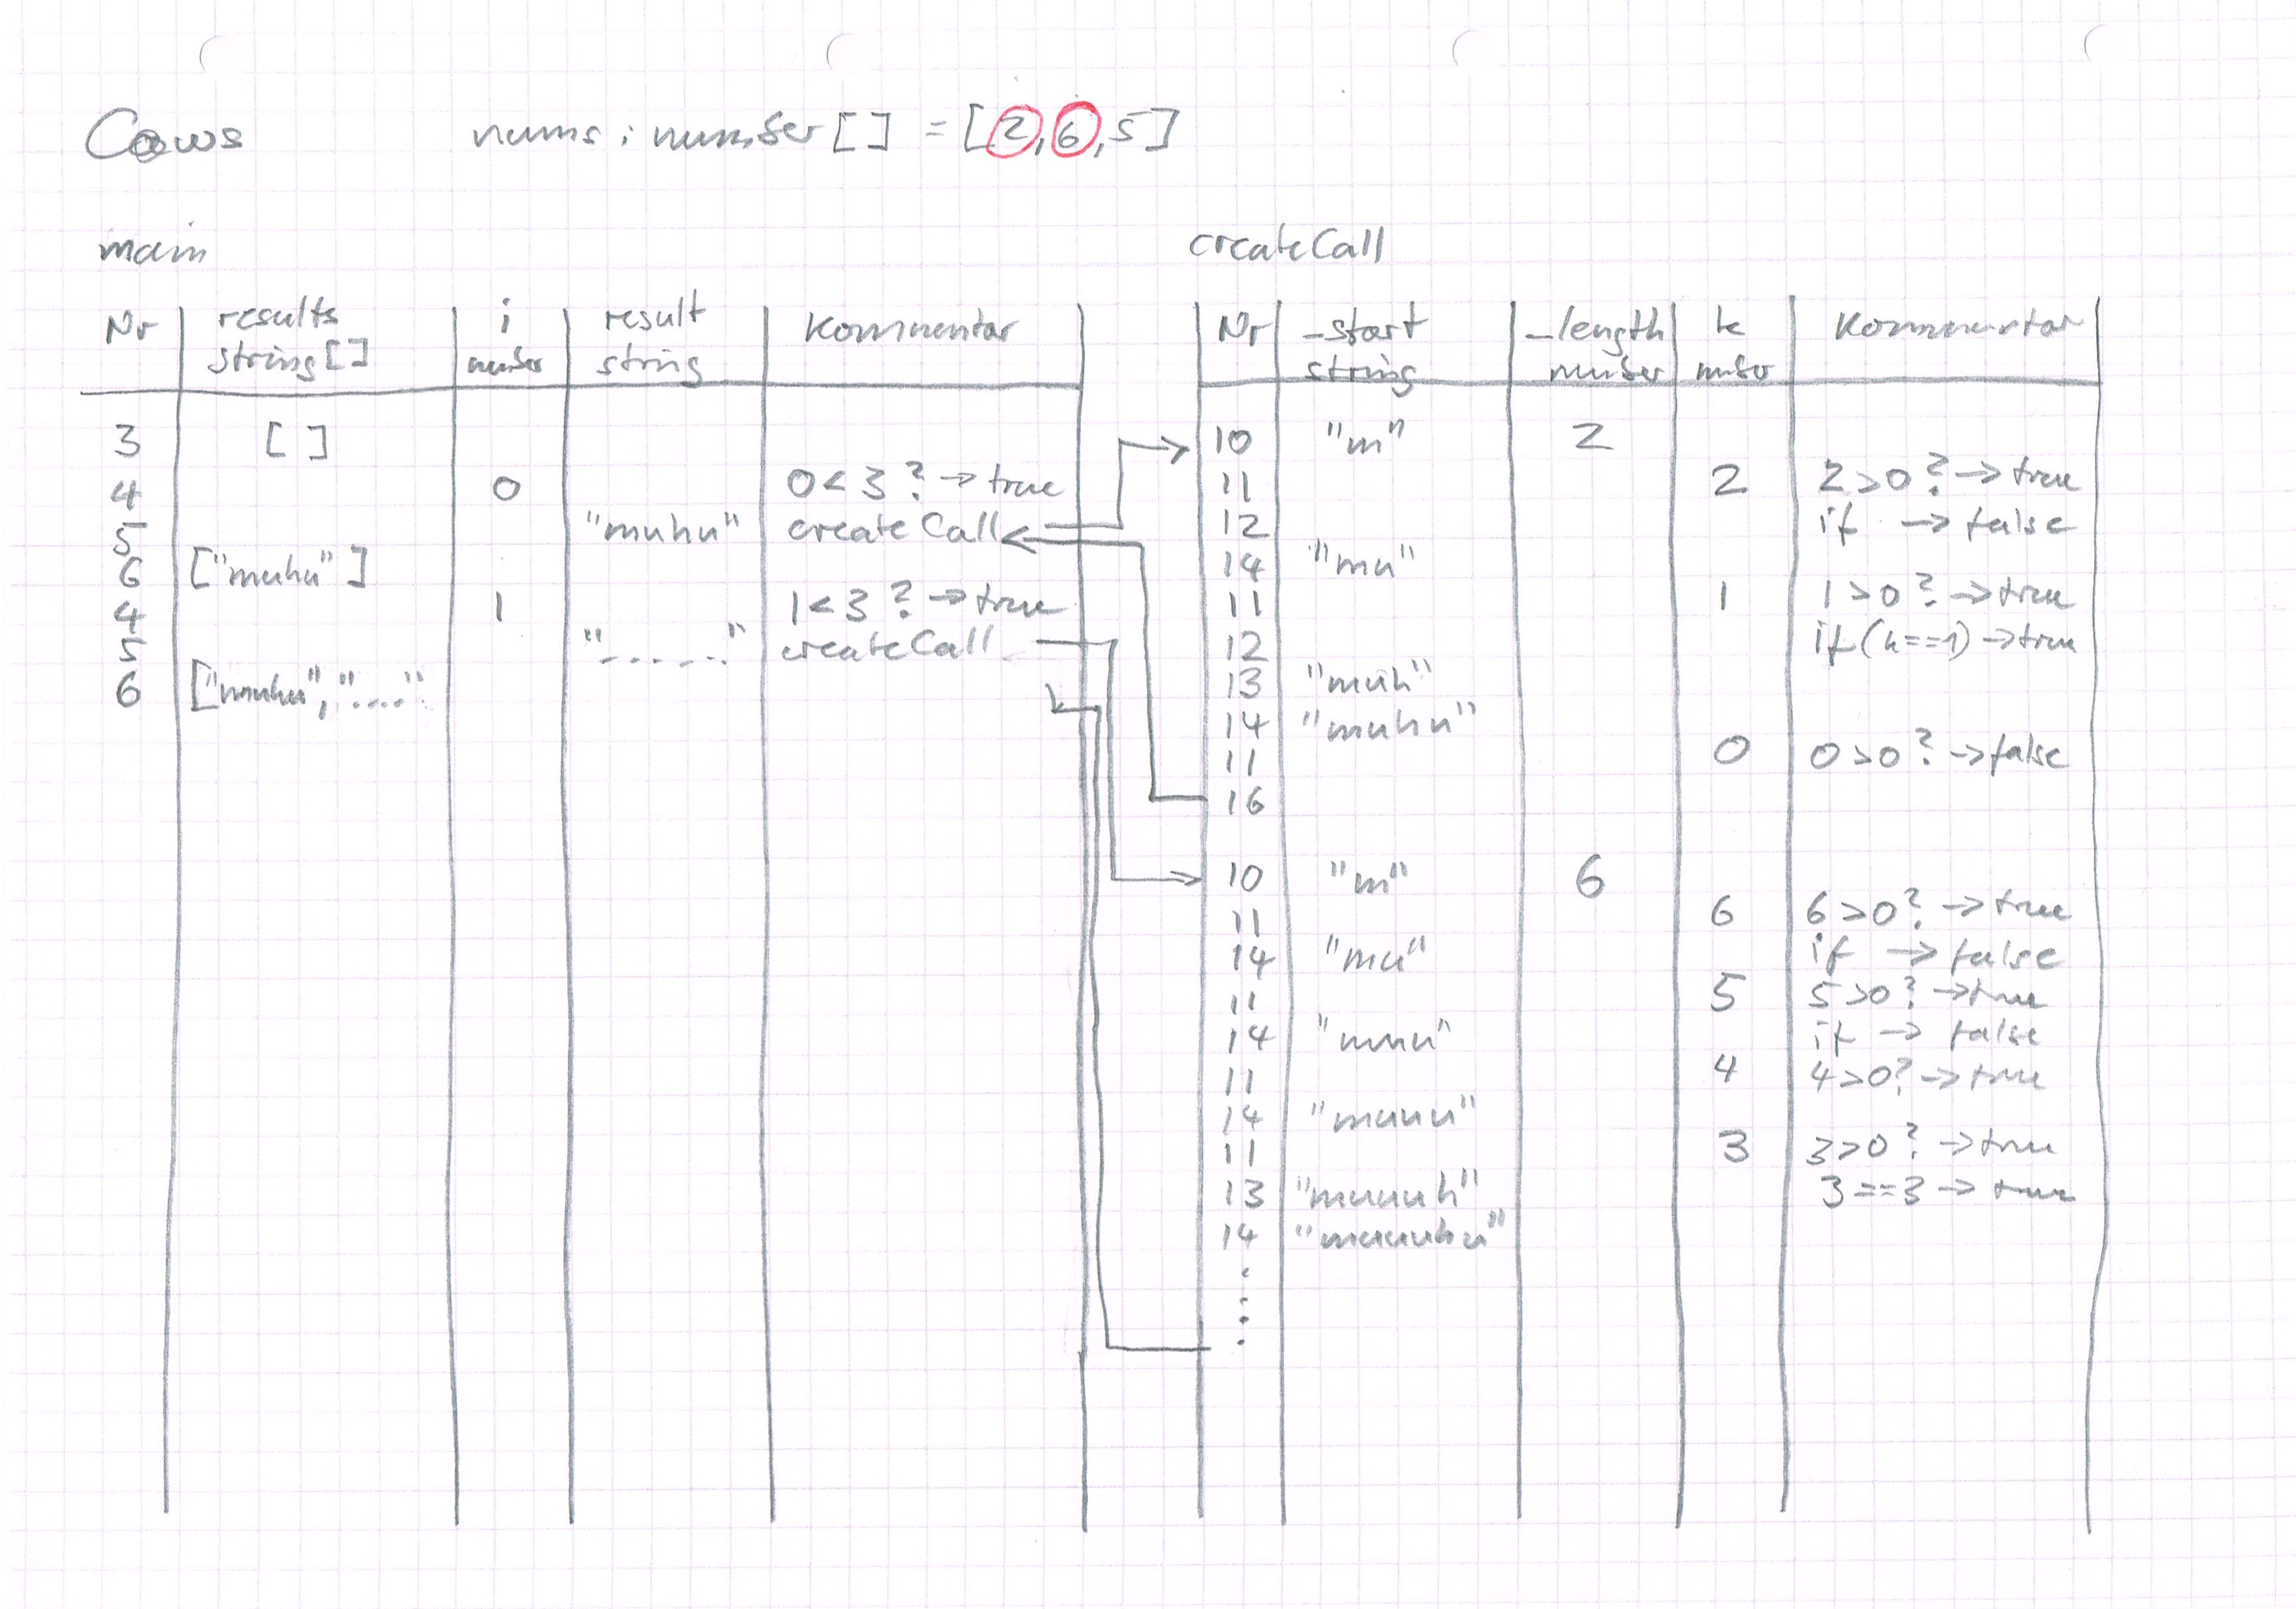 Cows nums: number[] = [2,6,5]
main createCall
Nr results string[] i number result string Kommentar Nr _start string _length number k number Kommentar
3 [ ] 10 "m" 2
4 0 0<3? → true 11 2 2>0? → true
5 "muhu" createCall 12 if → false
6 ["muhu"] 14 "mu"
4 1 1<3? → true 11 1 1>0? → true
5 "......" createCall 12 if(k==1) → true
6 ["muhu", "....." 13 "muh"
14 "muhu"
11 0 0>0? → false
16
10 "m" 6
11 6 6>0? → true
14 "mu" if → false
11 5 5>0? → true
14 "muu" if → false
11 4 4>0? → true
14 "muuu"
11 3 3>0? → true
13 "muuuh" 3==3 → true
14 "muuuhu"